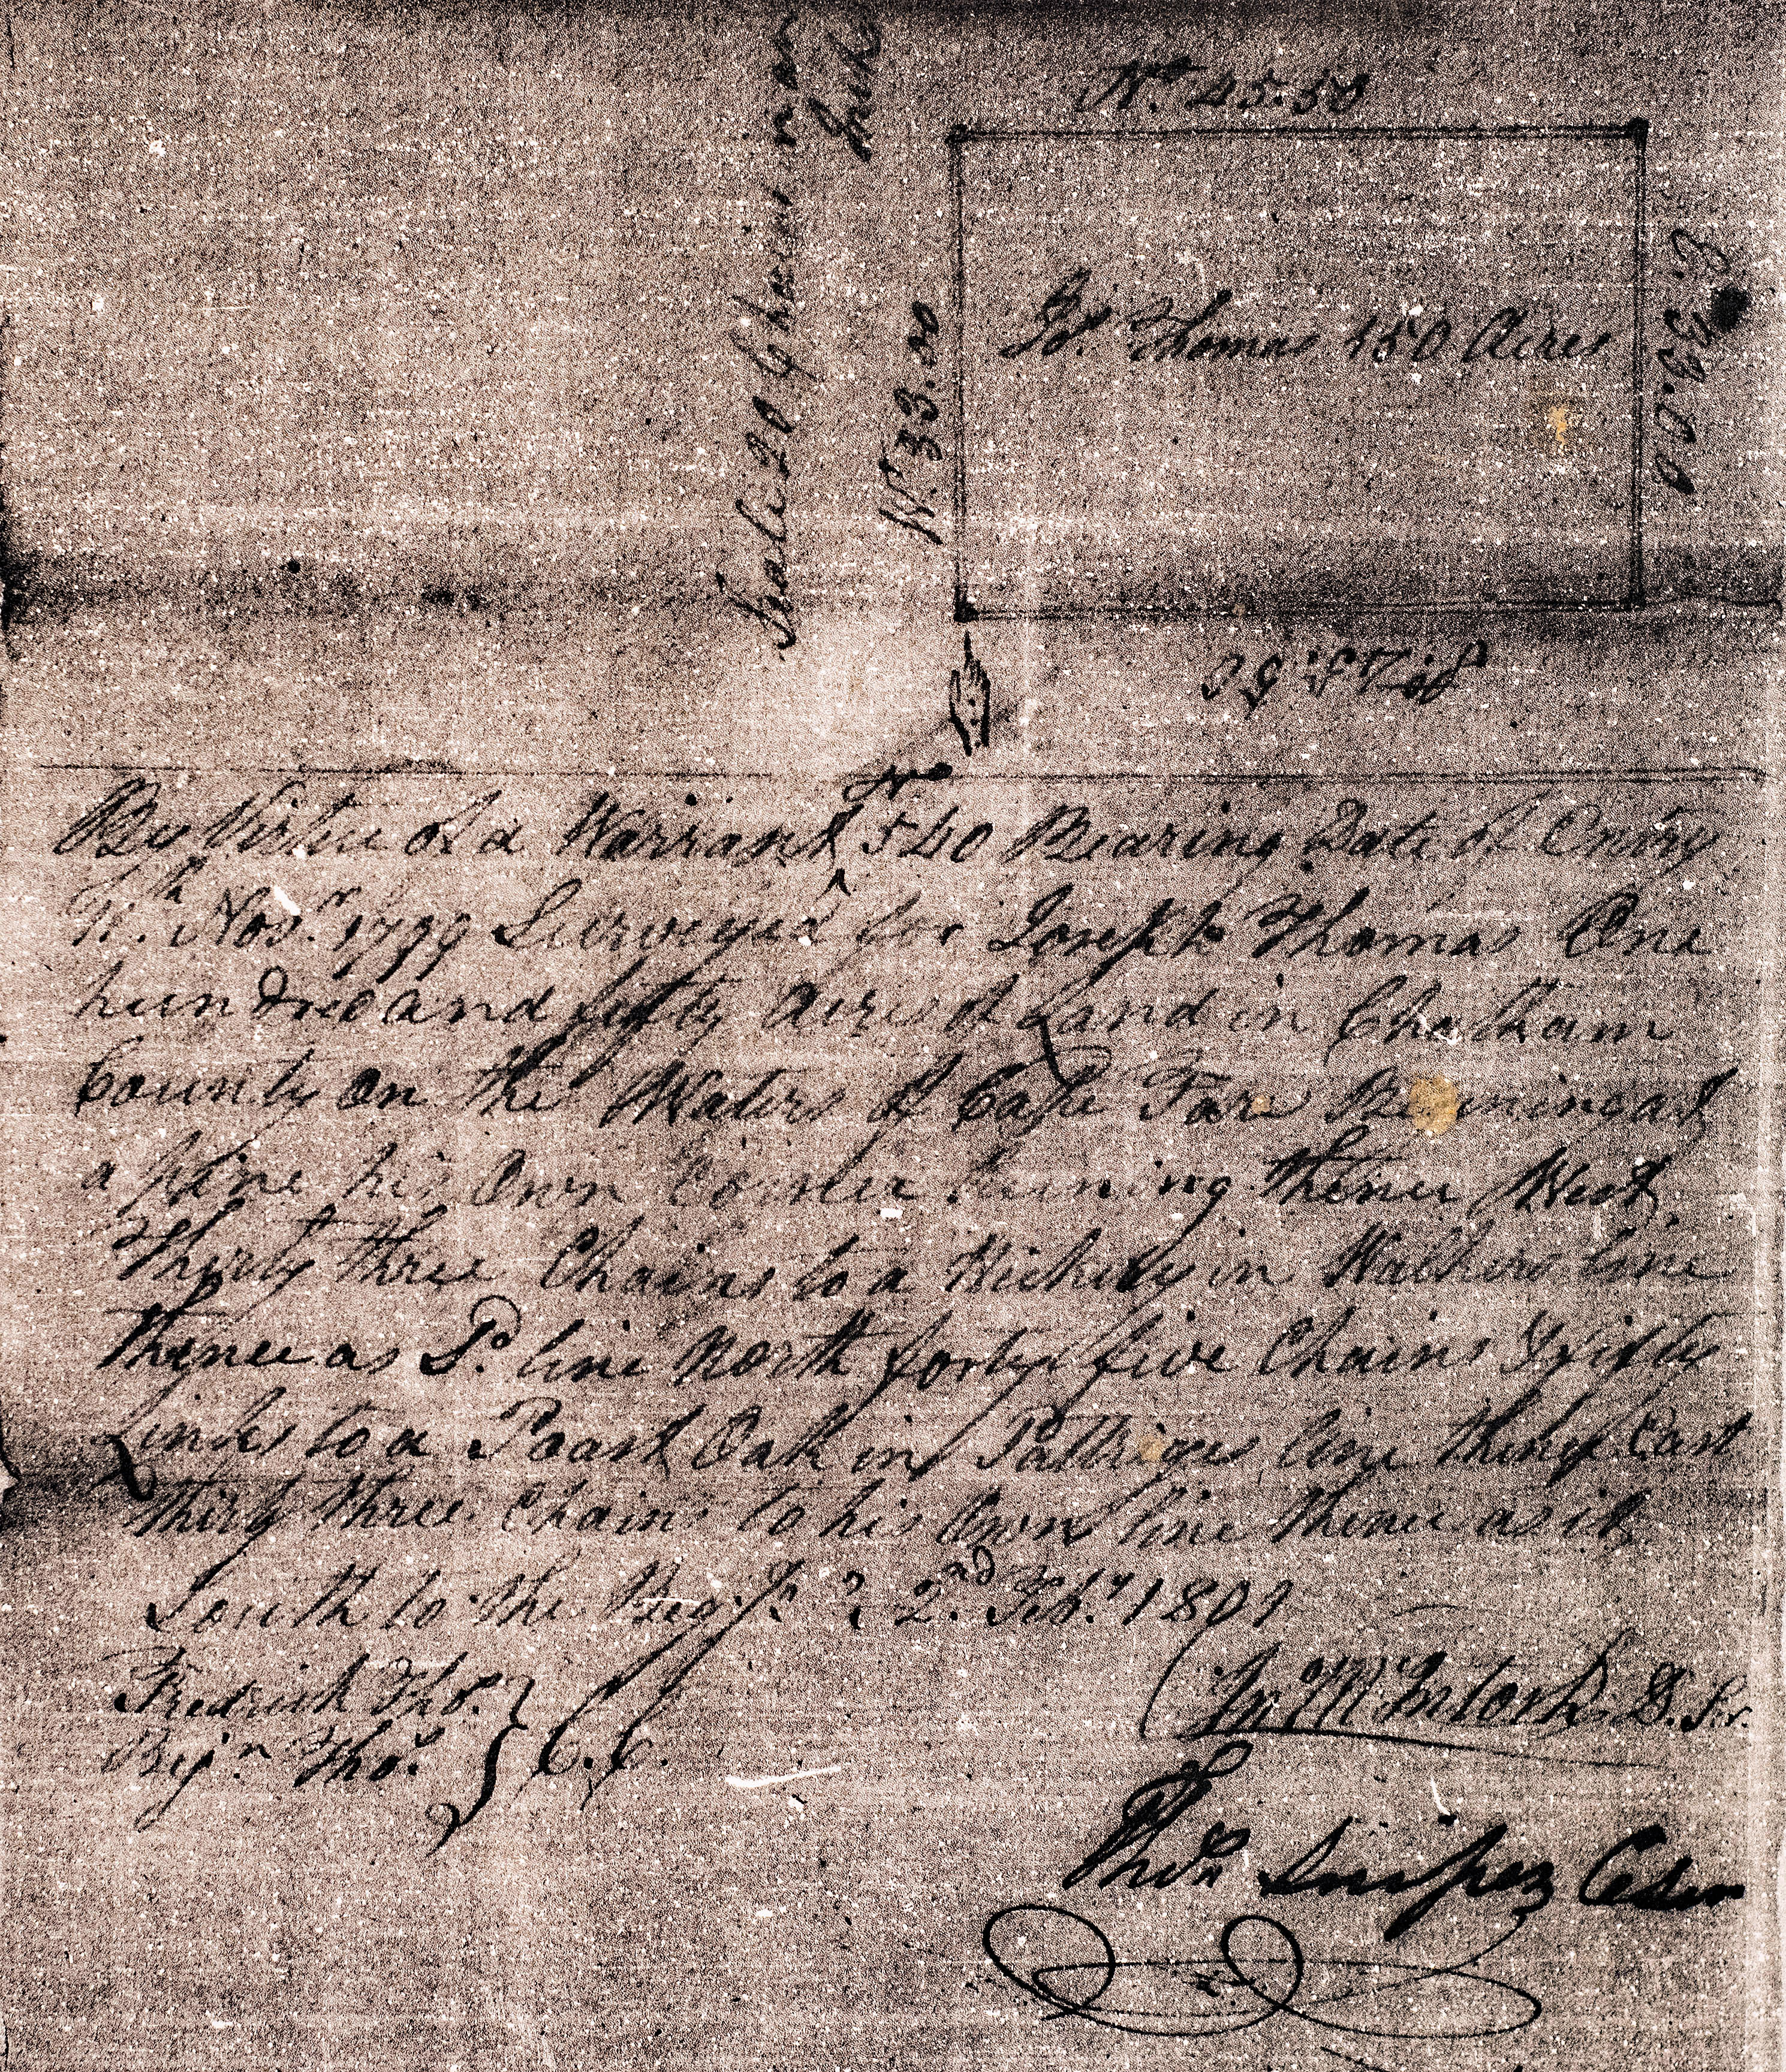 Scale 20 Chains per
Inch
No. 45.50
W. 33.00
Jos. Thomas 150 Acres
E. 33.00
So. 45.50
By Virtue of a Warrant No 540 Bearing Date of Entry
Nov.r 1799 Surveyed for Joseph Thomas One
hundred and fifty Acres of Land in Chatham
County on the Waters of Cape Fare Begining at
a pine his Own Corner runing thence West
Thirty three Chains to a Hickory in Walkers line
Thence as Sd. line North forty five Chains & fifty
Links to a Poast Oak in line thence East
thirty three Chains to his Own line thence as it
South to the Beg. 2nd Feb.y 1801
Fredrick Tho.s } C.C.
Bj.n Tho.s
Jn McIntosh D. Sr.
Thos Snipez